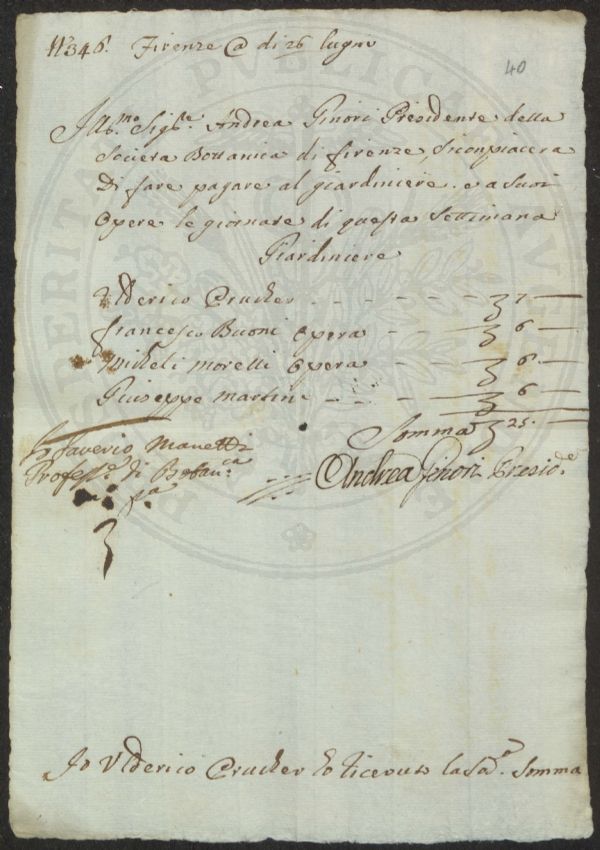 11346. Firenze @ di 26 lugno
40
Ill.mo Sig.re Andrea Ginori Presidente della
Societa Bottanica di firenze, Siconpiacera
Di fare pagare al giardiniere. e a Suoi
Opere le giornate di questa Settimana
Giardiniere
Vlderico Crucker - - - - 7 -
francesco Buoni Opera - - - 6 -
Micheli Moretti Opera - - - 6 -
Giuseppe Martini - - - 6
Somma 25. -
Saverio Manetti
Profess.e di Botan.ca
Andrea Ginori Presid.e
Jo Vlderico Crucker ho ricevuto la Sd.a Somma
PROSPERITATI PUBLICAE AUGENDAE